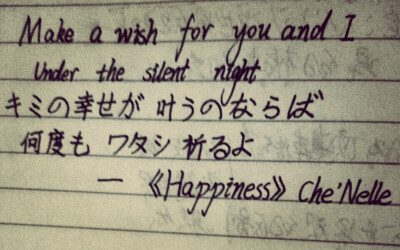 Make a wish for you and I
Under the silent night
キミの幸せが 叶うのならば
何度も ワタシ 祈るよ
— 《Happiness》 Che'Nelle